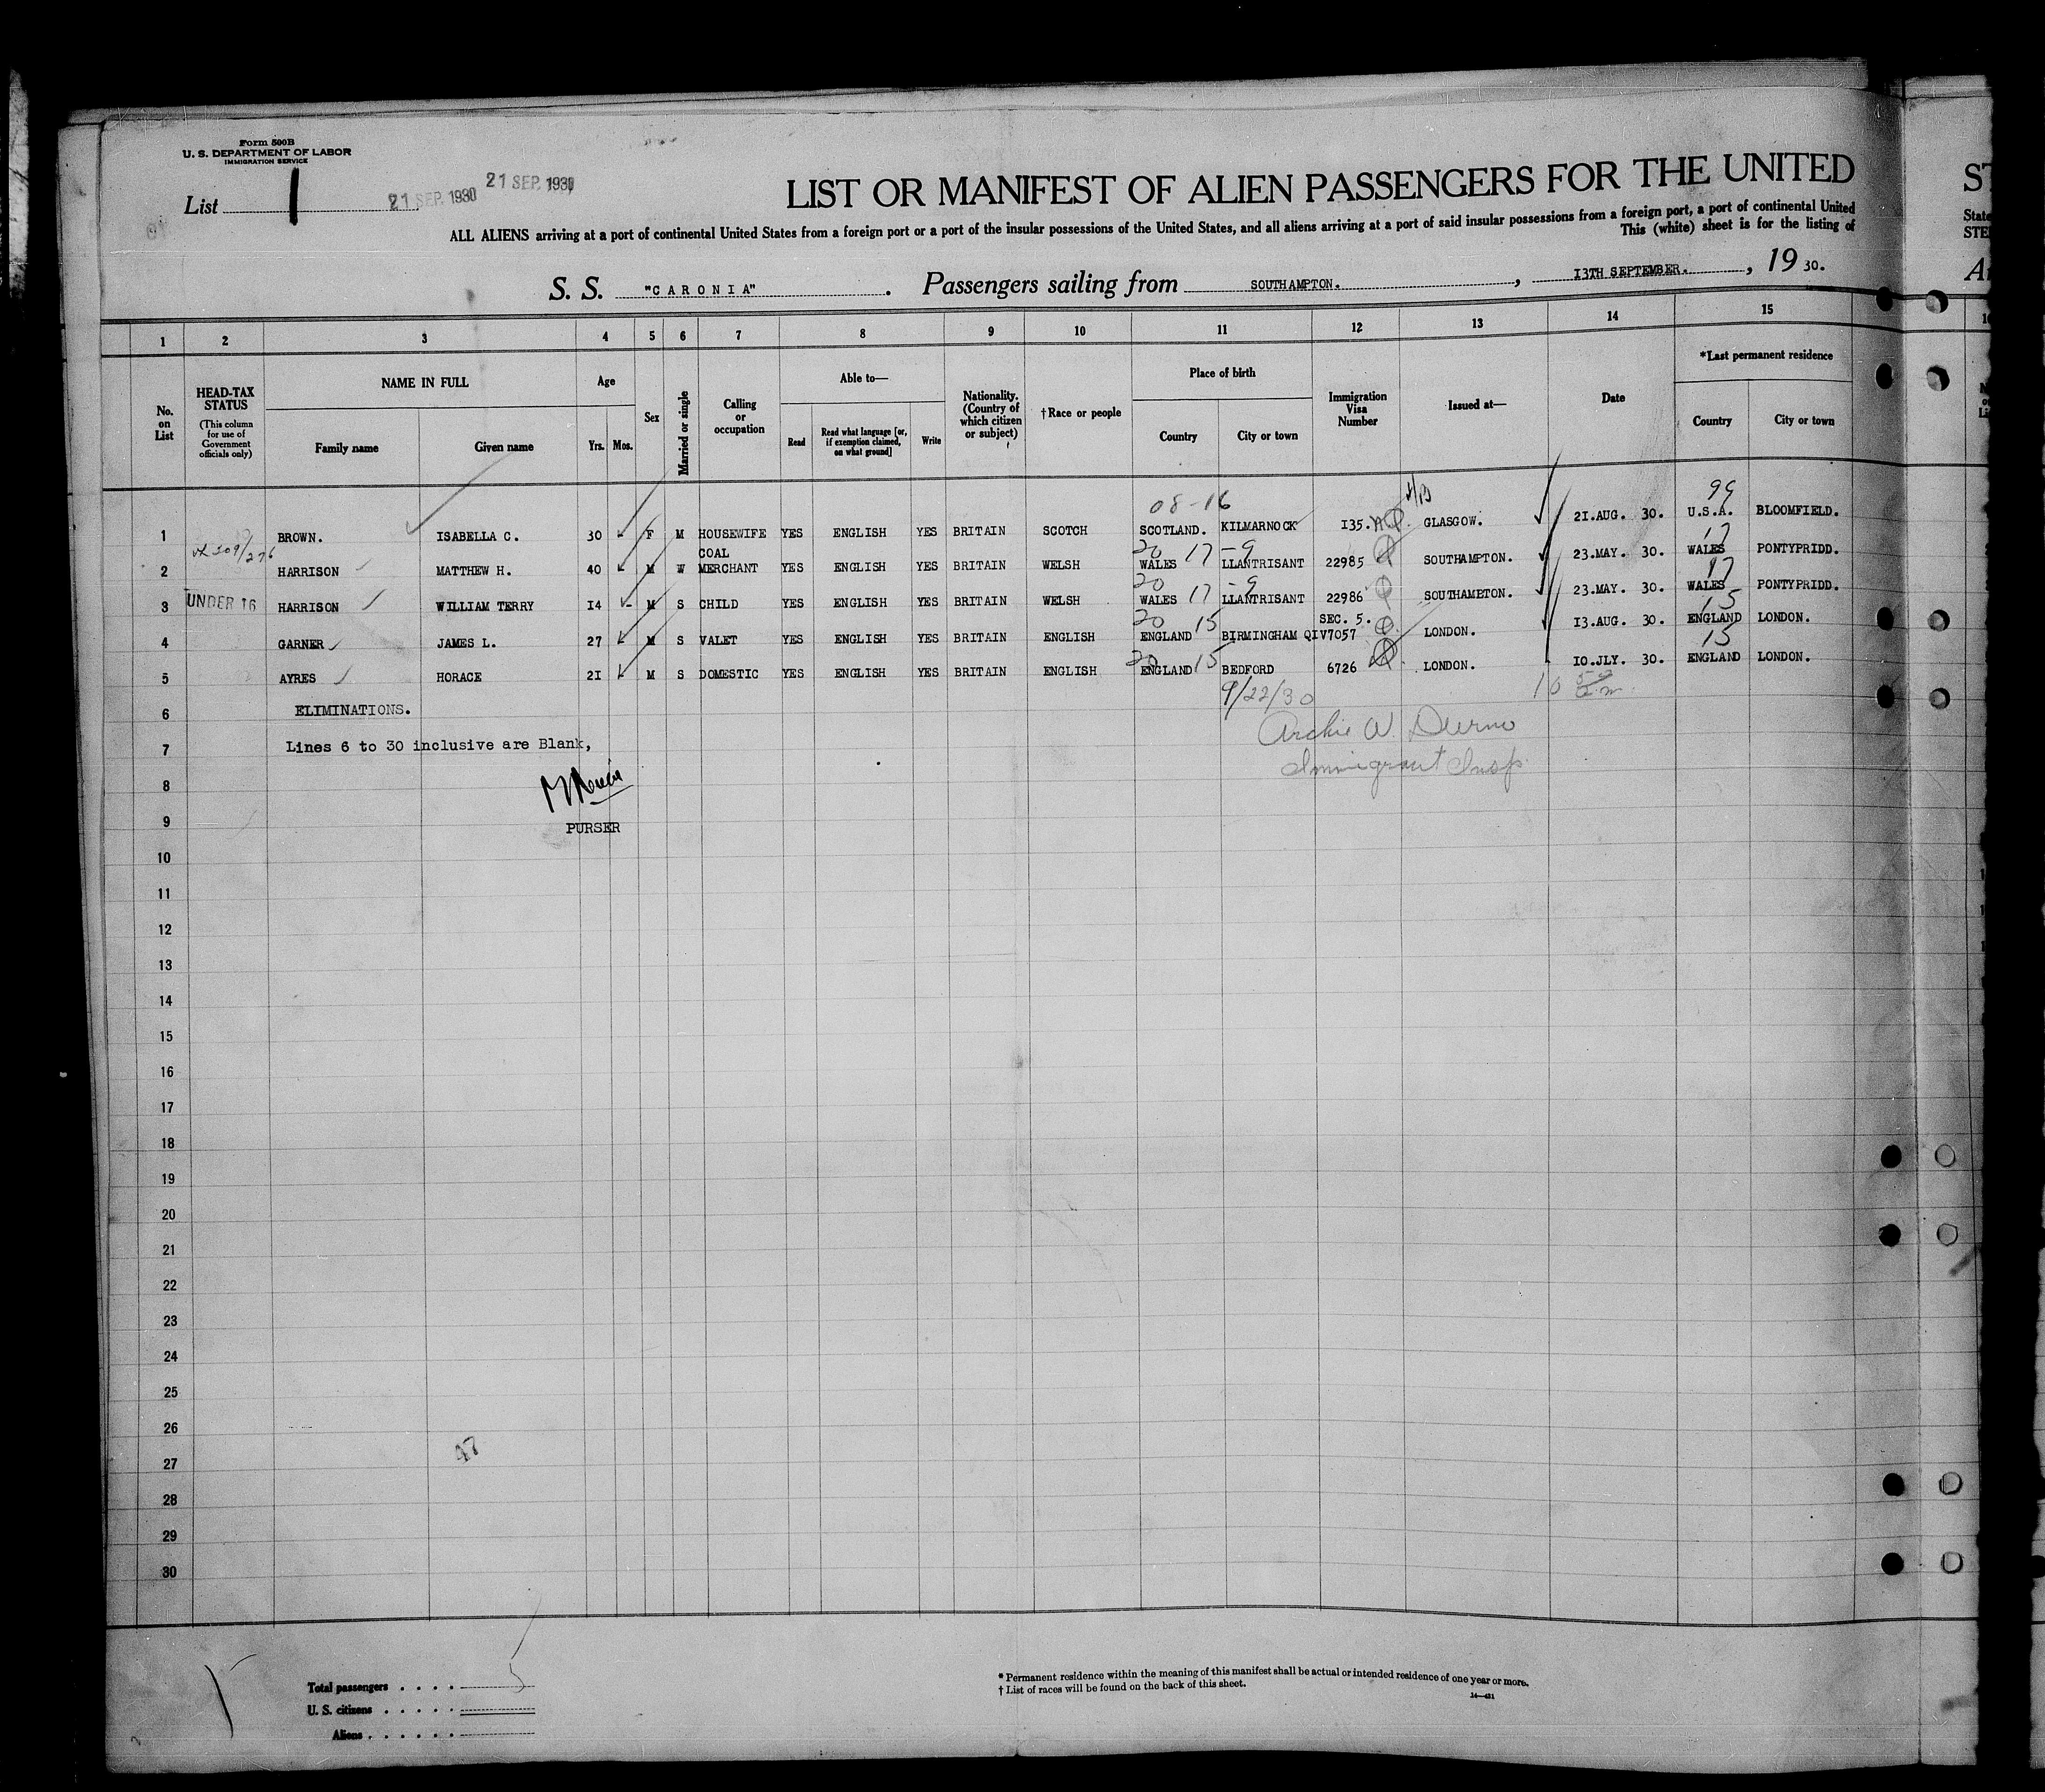 Form 500B
U. S. DEPARTMENT OF LABOR
IMMIGRATION SERVICE
List 1
21 SEP. 1930 21 SEP. 1930
LIST OR MANIFEST OF ALIEN PASSENGERS FOR THE UNITED
ALL ALIENS arriving at a port of continental United States from a foreign port or a port of the insular possessions of the United States, and all aliens arriving at a port of said insular possessions from a foreign port, a port of continental United
This (white) sheet is for the listing of
S. S. "CARONIA". Passengers sailing from SOUTHAMPTON., 13TH SEPTEMBER., 19 30.
1 2 3 4 5 6 7 8 9 10 11 12 13 14 15
No. on List
HEAD-TAX STATUS (This column for use of Government officials only)
NAME IN FULL Family name Given name
Age Yrs. Mos.
Sex
Married or single
Calling or occupation
Able to— Read Read what language [or, if exemption claimed, on what ground] Write
Nationality. (Country of which citizen or subject)
†Race or people
Place of birth Country City or town
Immigration Visa Number
Issued at—
Date
*Last permanent residence Country City or town
08-16 99
1 BROWN. ISABELLA C. 30 F M HOUSEWIFE YES ENGLISH YES BRITAIN SCOTCH SCOTLAND. KILMARNOCK 135. GLASGOW. 21.AUG. 30. U.S.A. BLOOMFIELD.
20 17-9 17
2 HARRISON MATTHEW H. 40 M W COAL MERCHANT YES ENGLISH YES BRITAIN WELSH WALES LLANTRISANT 22985 SOUTHAMPTON. 23.MAY. 30. WALES PONTYPRIDD.
20 17-9 17
3 UNDER 16 HARRISON WILLIAM TERRY 14 - M S CHILD YES ENGLISH YES BRITAIN WELSH WALES LLANTRISANT 22986 SOUTHAMPTON. 23.MAY. 30. WALES PONTYPRIDD.
20 15 SEC. 5. 15
4 GARNER JAMES L. 27 M S VALET YES ENGLISH YES BRITAIN ENGLISH ENGLAND BIRMINGHAM QIV7057 LONDON. 13.AUG. 30. ENGLAND LONDON.
20 15 15
5 AYRES HORACE 21 M S DOMESTIC YES ENGLISH YES BRITAIN ENGLISH ENGLAND BEDFORD 6726 LONDON. 10.JLY. 30. ENGLAND LONDON.
9/22/30
6 ELIMINATIONS.
7 Lines 6 to 30 inclusive are Blank,
Archie W. Durno
Immigrant Insp.
8
9
PURSER
10
11
12
13
14
15
16
17
18
19
20
21
22
23
24
25
26
27
47
28
29
30
Total passengers 5
U. S. citizens
Aliens
* Permanent residence within the meaning of this manifest shall be actual or intended residence of one year or more.
† List of races will be found on the back of this sheet.
14—431